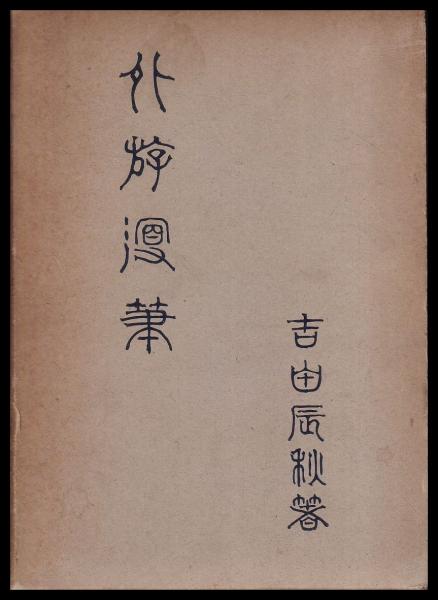 外游漫筆
吉田辰秋著